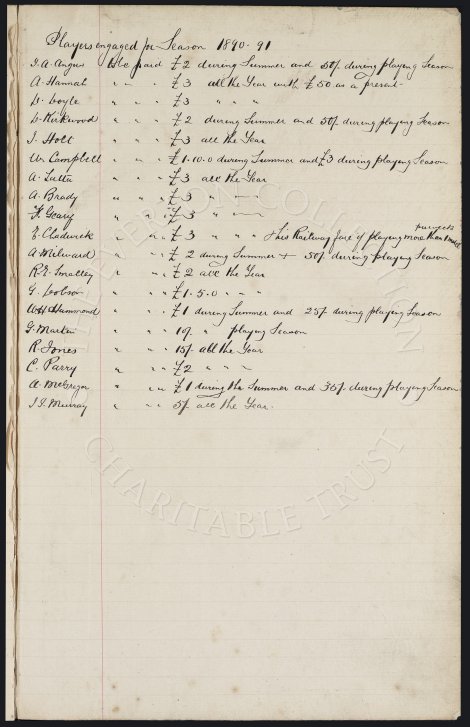 Players engaged for Season 1890-91
J. A. Angus to be paid £2 during Summer and 50/- during playing Season
A. Hannah " " " £3 all the Year with £50 as a present
D. Doyle " " " £3 " " "
D. Kirkwood " " " £2 during Summer and 50/- during playing Season
J. Holt " " " £3 all the Year
W. Campbell " " " £1-10-0 during Summer and £3 during playing Season
A. Latta " " " £3 all the Year
A. Brady " " " £3 " "
F. Geary " " " £3 " "
E. Chadwick " " " £3 " " " & his Railway fare if playing more than 1 match
A. Milward " " " £2 during Summer + 50/- during playing Season
R. E. Smalley " " " £2 all the Year
G. Dobson " " " £1-5-0 " "
W H Hammond " " " £1 during Summer and 25/- during playing Season
G. Martin " " " 10/- " playing Season
R. Jones " " " 15/- all the Year
C. Parry " " " £2 " " "
A. McGregor " " " £1 during the Summer and 35/- during playing Season
J. J. Murray " " " 5/- all the Year.
THE EVERTON COLLECTION
CHARITABLE TRUST